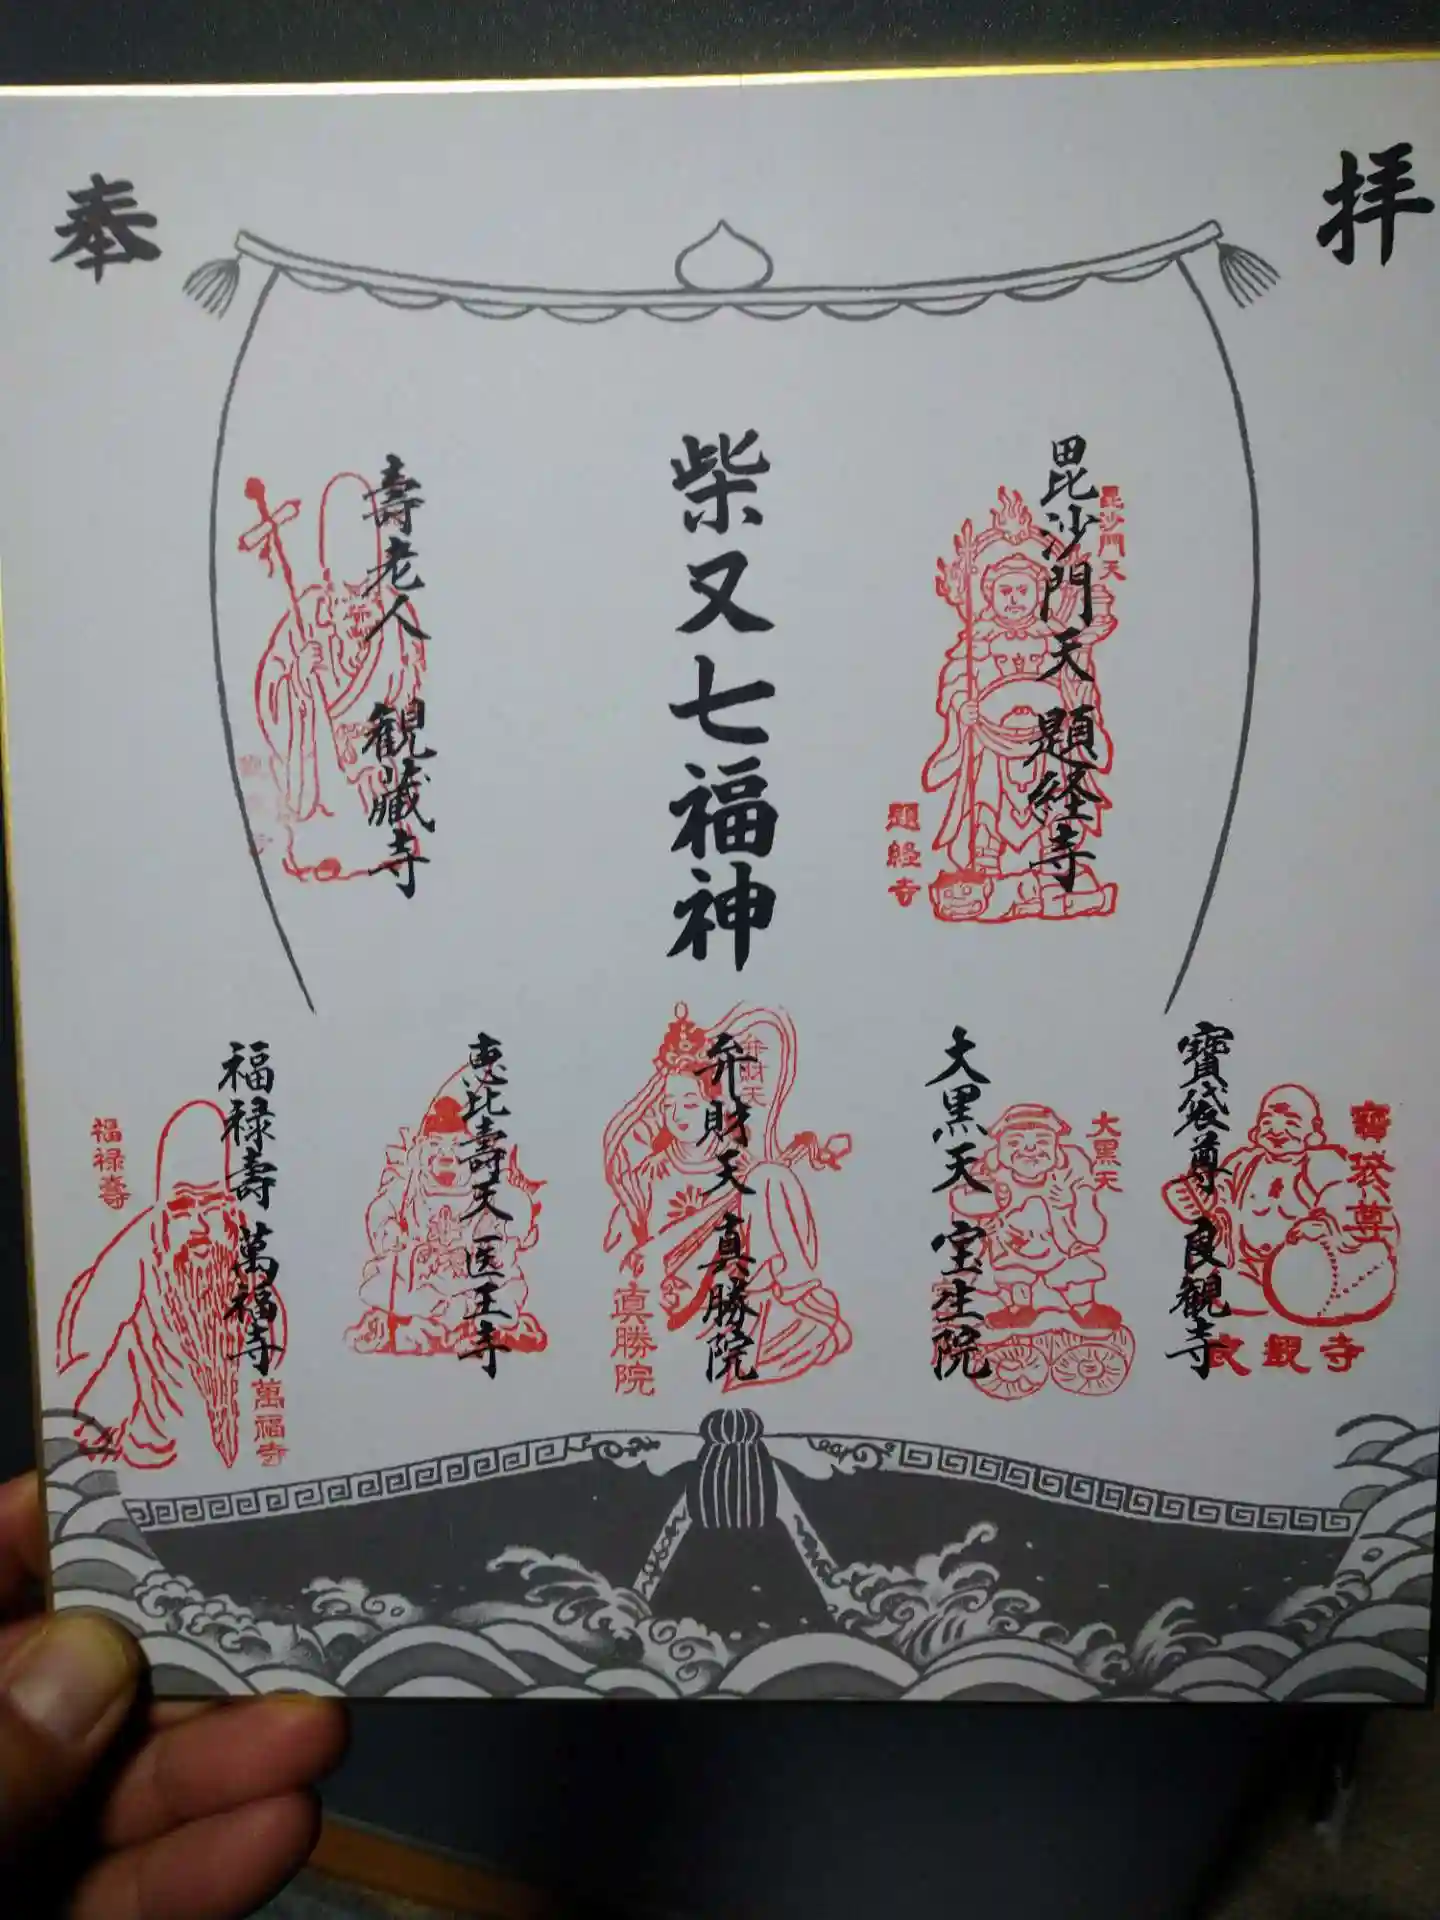 拝
奉
柴又七福神
毘沙門天 題経寺
毘沙門天
題経寺
壽老人 観蔵寺
寳袋尊 良観寺
寳袋尊
良観寺
大黒天 宝生院
大黒天
弁財天 真勝院
弁財天
真勝院
恵比壽天 医王寺
福禄壽 萬福寺
福禄壽
萬福寺